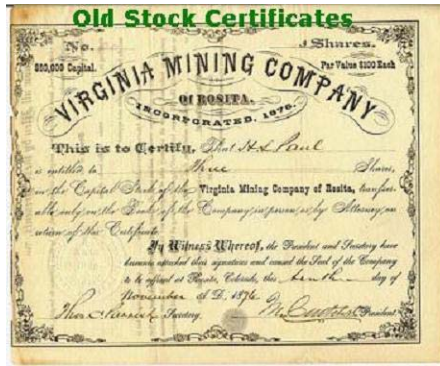 Old Stock Certificates
No.
Shares.
$50,000 Capital.
Par Value $100 Each
VIRGINIA MINING COMPANY
Of ROSITA.
INCORPORATED, 1876.
This is to Certify, That H L Paul
is entitled to Three Shares,
in the Capital Stock of the Virginia Mining Company of Rosita, transfer-
able only on the Books of the Company in person or by Attorney on
return of this Certificate.
In Witness Whereof, the President and Secretary have
hereunto attached their signatures and caused the Seal of the Company
to be affixed at Rosita, Colorado, this tenth day of
November A D. 1876.
Secretary. President